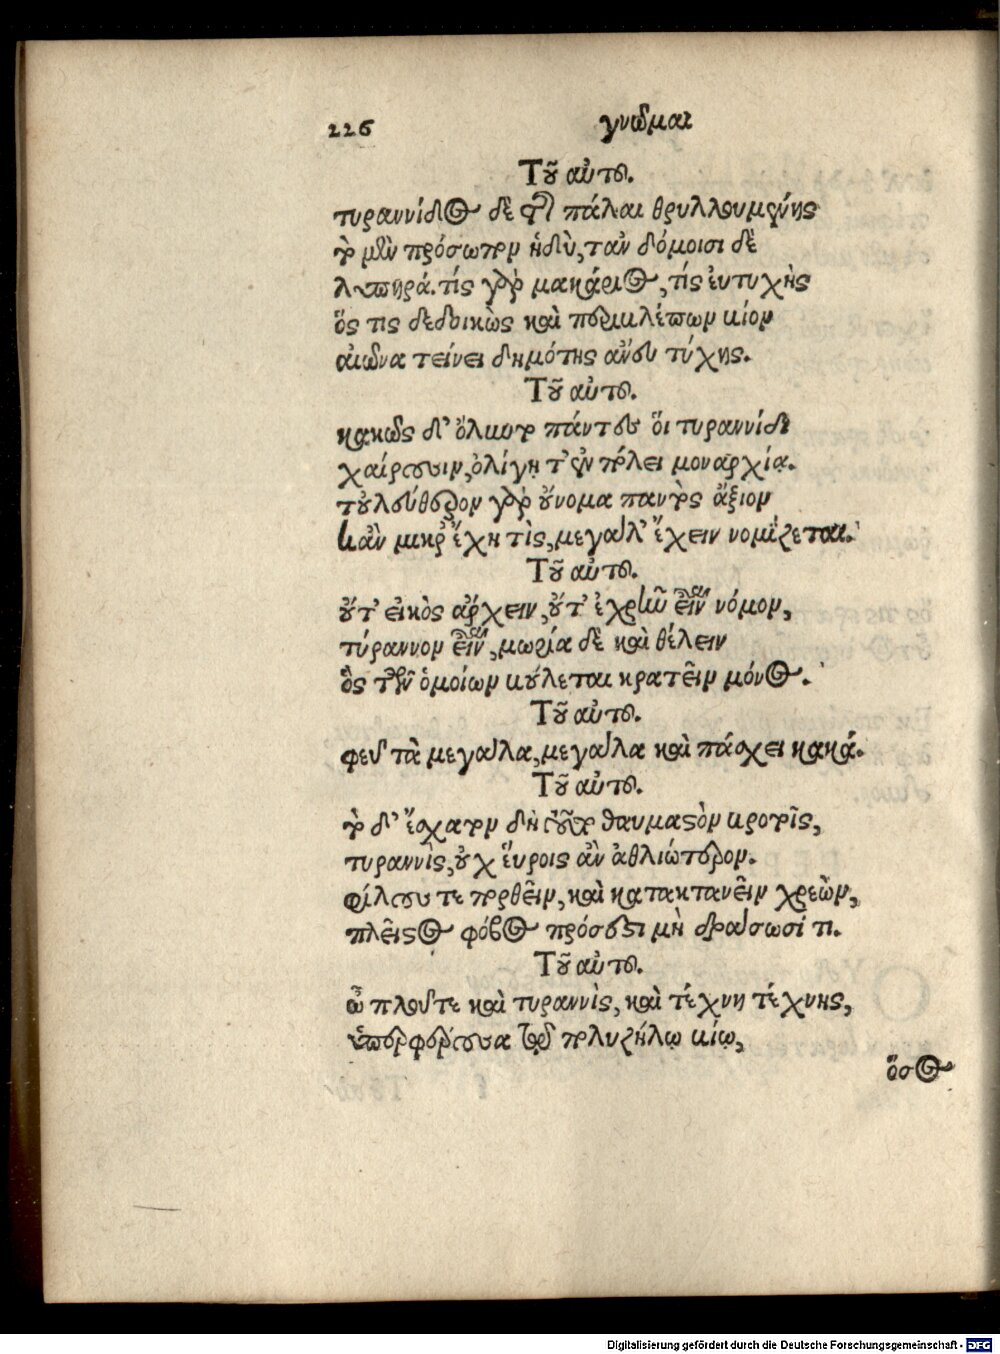 226 γνῶμαι
Τοῦ αὐτοῦ.
τυραννίδος δὲ τῆς πάλαι θρυλλουμένης
τὸ μὲν πρόσωπον ἡδὺ, τἀν δόμοισι δὲ
λυπηρά. τίς γὰρ μακάριος, τίς ἐυτυχὴς
ὅς τις δεδοικὼς καὶ περιβλέπων βίον
αἰῶνα τείνει δημότης ἄνευ τύχης.
Τοῦ αὐτοῦ.
κακῶς δ' ὄλοιντο πάντες οἳ τυραννίδι
χαίρουσιν, ὀλίγῃ τ' ἐν πόλει μοναρχίᾳ.
τοὐλεύθερον γὰρ ὄνομα παντὸς ἄξιον
κἂν μικρ' ἔχῃ τὶς, μεγάλ' ἔχειν νομίζεται.
Τοῦ αὐτοῦ.
οὔτ' εἰκὸς ἄρχειν, οὔτ' ἐχρῆν εἶναι νόμον,
τύραννον εἶναι, μωρία δὲ καὶ θέλειν
ὃς τῶν ὁμοίων βούλεται κρατεῖν μόνος.
Τοῦ αὐτοῦ.
φεῦ τὰ μεγάλα, μεγάλα καὶ πάσχει κακά.
Τοῦ αὐτοῦ.
τὸ δ' ἔσχατον δὴ τοῦτο θαυμαστὸν βροτοῖς,
τυραννὶς, οὐχ εὕροις ἂν ἀθλιώτερον.
φίλους τε πορθεῖν, καὶ κατακτανεῖν χρεὼν,
πλεῖστος φόβος πρόσεστι μὴ δράσωσί τι.
Τοῦ αὐτοῦ.
ὦ πλοῦτε καὶ τυραννὶς, καὶ τέχνη τέχνης,
ὑπερφέρουσα τῷ πολυζήλῳ βίῳ,
ὅσος
Digitalisierung gefördert durch die Deutsche Forschungsgemeinschaft - DFG